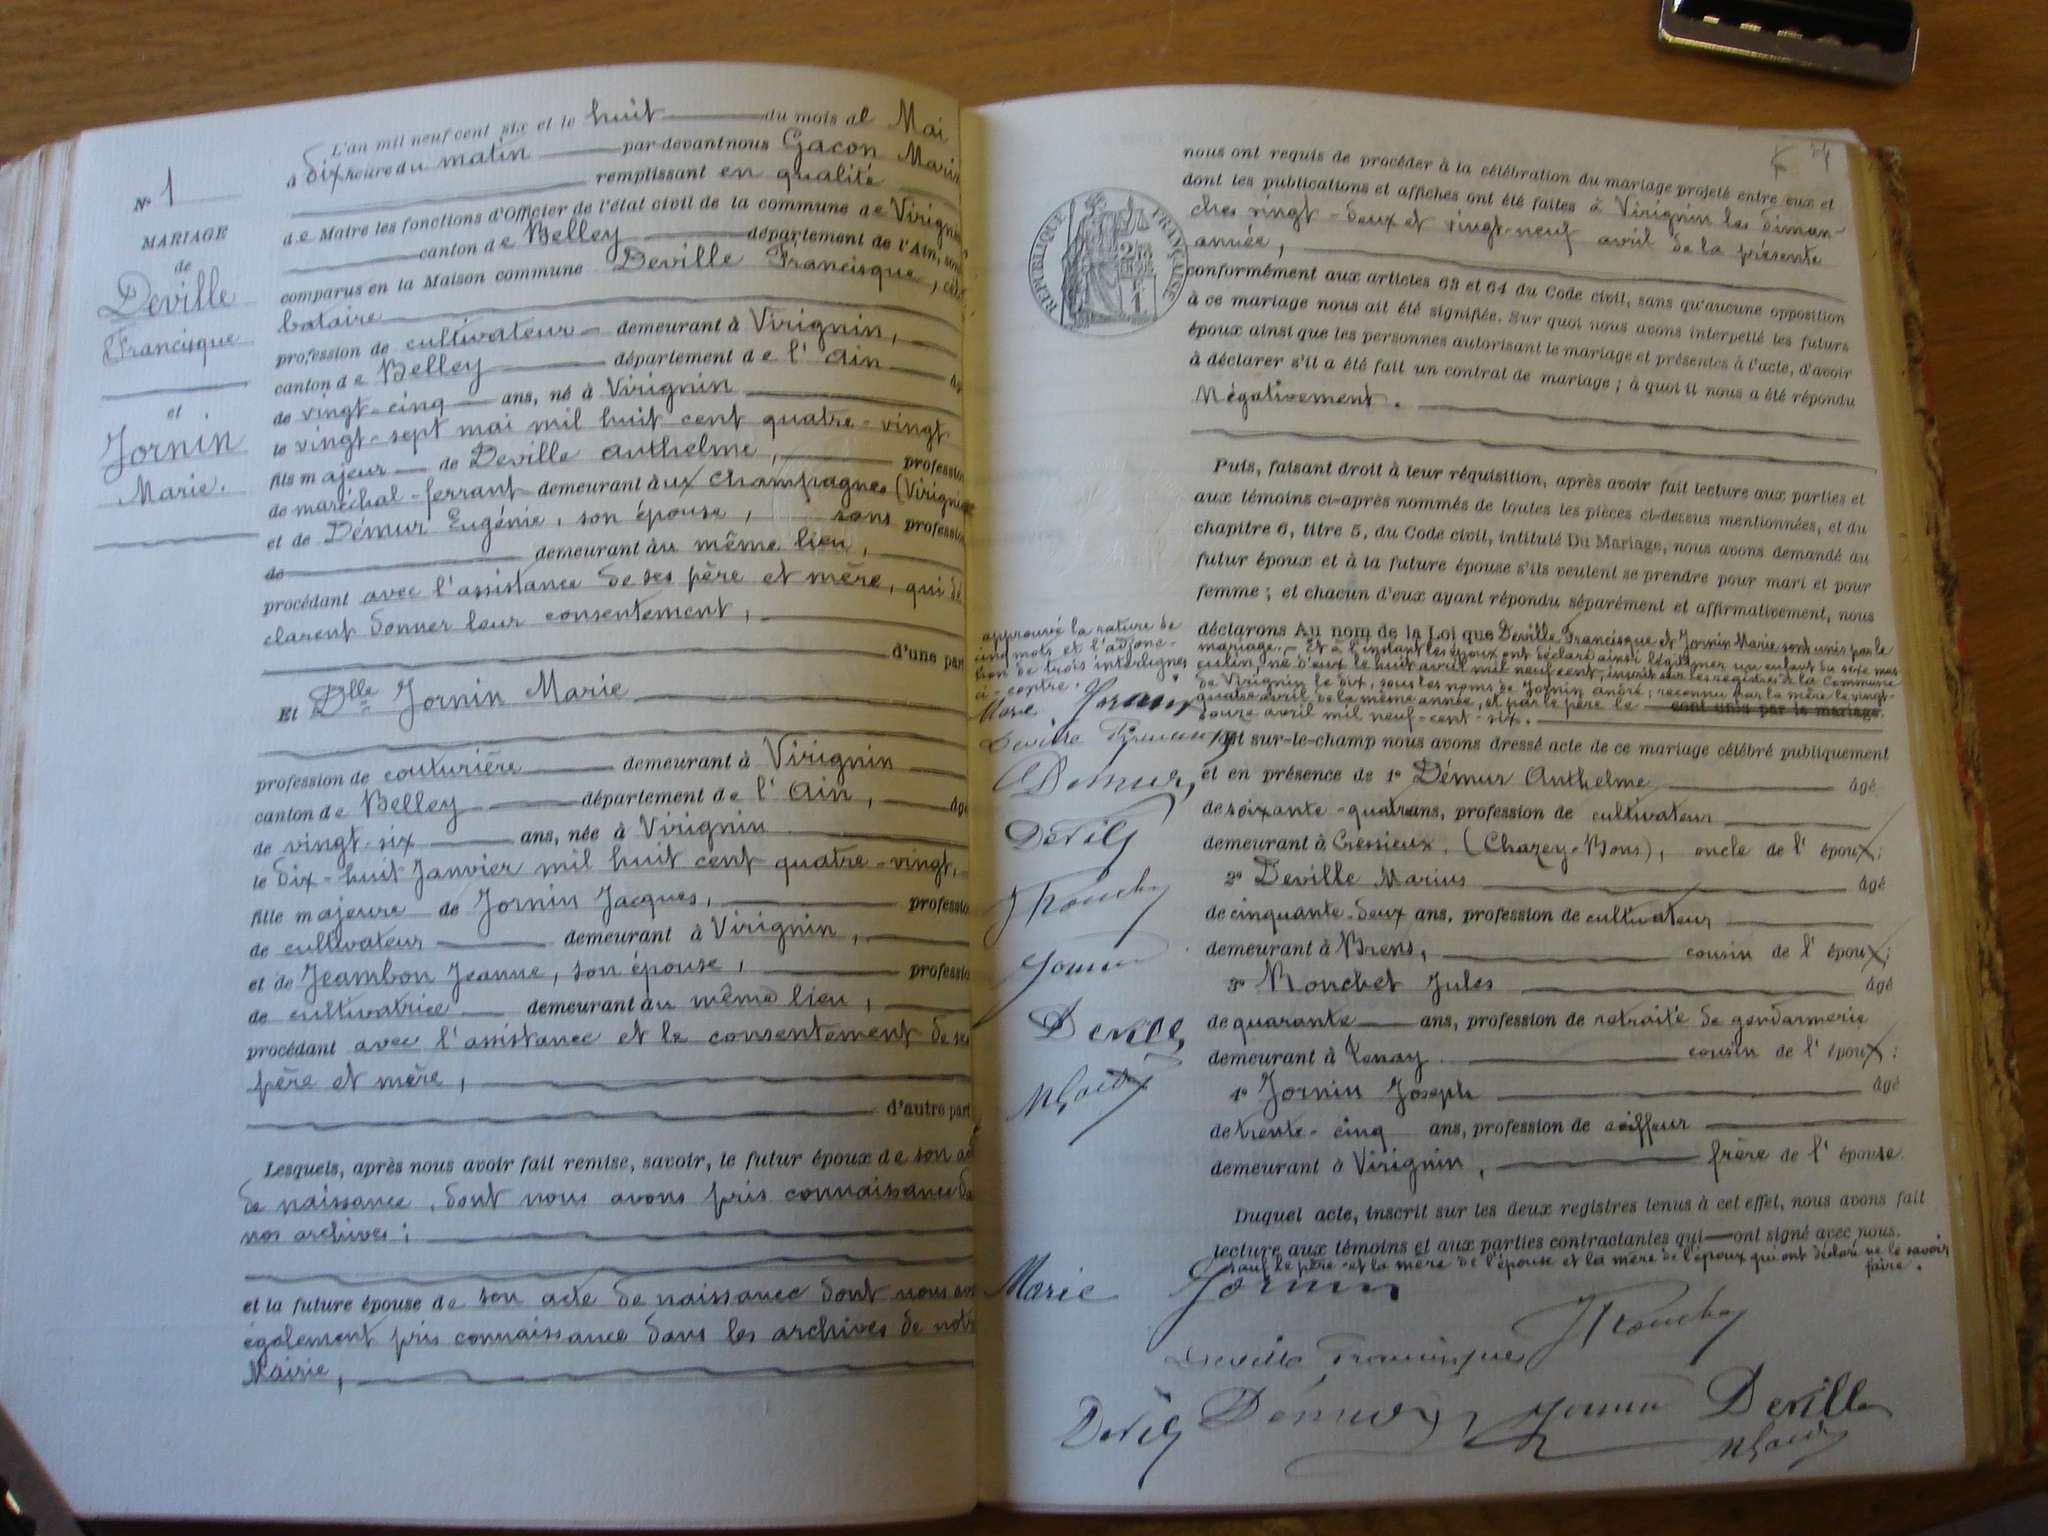 N° 1
MARIAGE
de
Deville
Francisque
et
Jornin
Marie.
L'an mil neuf cent six et le huit du mois de Mai
à dix heure du matin par-devant nous Gacon Marin
remplissant en qualité
de Maire les fonctions d'Officier de l'état civil de la commune de Virignin
canton de Belley département de l'Ain, sont
comparus en la Maison commune Deville Francisque, céli-
bataire
profession de cultivateur demeurant à Virignin,
canton de Belley département de l'Ain
de vingt-cinq ans, né à Virignin
le vingt-sept mai mil huit cent quatre-vingt
fils majeur de Deville Anthelme, profession
de maréchal-ferrant demeurant aux Champagnes (Virignin)
et de Démur Eugénie, son épouse, sans profession
de demeurant au même lieu,
procédant avec l'assistance de ses père et mère, qui dé
clarent donner leur consentement,
d'une part
Et Dlle Jornin Marie
profession de couturière demeurant à Virignin
canton de Belley département de l'Ain, âgé
de vingt-six ans, née à Virignin
le dix-huit Janvier mil huit cent quatre-vingt,
fille majeure de Jornin Jacques, profession
de cultivateur demeurant à Virignin,
et de Jeambon Jeanne, son épouse, profession
de cultivatrice demeurant au même lieu,
procédant avec l'assistance et le consentement de ses
père et mère,
d'autre part
Lesquels, après nous avoir fait remise, savoir, le futur époux de son acte
de naissance, dont nous avons pris connaissance dans
nos archives;
et la future épouse de son acte de naissance dont nous avons
également pris connaissance dans les archives de notre
Mairie,
RÉPUBLIQUE FRANÇAISE
nous ont requis de procéder à la célébration du mariage projeté entre eux et
dont les publications et affiches ont été faites à Virignin les diman-
ches vingt-deux et vingt-neuf avril de la présente
année,
conformément aux articles 63 et 64 du Code civil, sans qu'aucune opposition
à ce mariage nous ait été signifiée. Sur quoi nous avons interpellé les futurs
époux ainsi que les personnes autorisant le mariage et présentes à l'acte, d'avoir
à déclarer s'il a été fait un contrat de mariage; à quoi il nous a été répondu
Négativement.
Puis, faisant droit à leur réquisition, après avoir fait lecture aux parties et
aux témoins ci-après nommés de toutes les pièces ci-dessus mentionnées, et du
chapitre 6, titre 5, du Code civil, intitulé Du Mariage, nous avons demandé au
futur époux et à la future épouse s'ils veulent se prendre pour mari et pour
femme; et chacun d'eux ayant répondu séparément et affirmativement, nous
déclarons Au nom de la Loi que Deville Francisque et Jornin Marie sont unis par le
mariage. - Et à l'instant les époux ont déclaré ainsi légitimer un enfant du sexe mas
culin, né d'eux le huit avril mil neuf cent, inscrit sur les registres de la Commune
de Virignin le dix, sous les noms de Jornin André; reconnu par la mère le vingt-
quatre avril de la même année, et par le père le sont unis par le mariage.
douze avril mil neuf-cent-six.
approuvé la rature de
cinq mots et l'adjonc-
tion de trois interlignes
ci-contre.
Marie Jornin
Deville Francisque
Démur
Deville
J Ronchet
Jornin
Deville
Et sur-le-champ nous avons dressé acte de ce mariage célébré publiquement
et en présence de 1° Démur Anthelme âgé
de soixante-quatre ans, profession de cultivateur
demeurant à Cressieux, (Chazey-Bons), oncle de l'époux;
2° Deville Marius âgé
de cinquante-deux ans, profession de cultivateur
demeurant à Brens, cousin de l'époux;
3° Ronchet Jules âgé
de quarante ans, profession de retraité de gendarmerie
demeurant à Tenay cousin de l'époux;
4° Jornin Joseph âgé
de trente-cinq ans, profession de coiffeur
demeurant à Virignin, frère de l'épouse.
Duquel acte, inscrit sur les deux registres tenus à cet effet, nous avons fait
lecture aux témoins et aux parties contractantes qui ont signé avec nous.
sauf le père et la mère de l'épouse et la mère de l'époux qui ont déclaré ne le savoir
faire.
Marie Jornin
J Ronchet
Deville Francisque
Deville Démur Jornin Deville